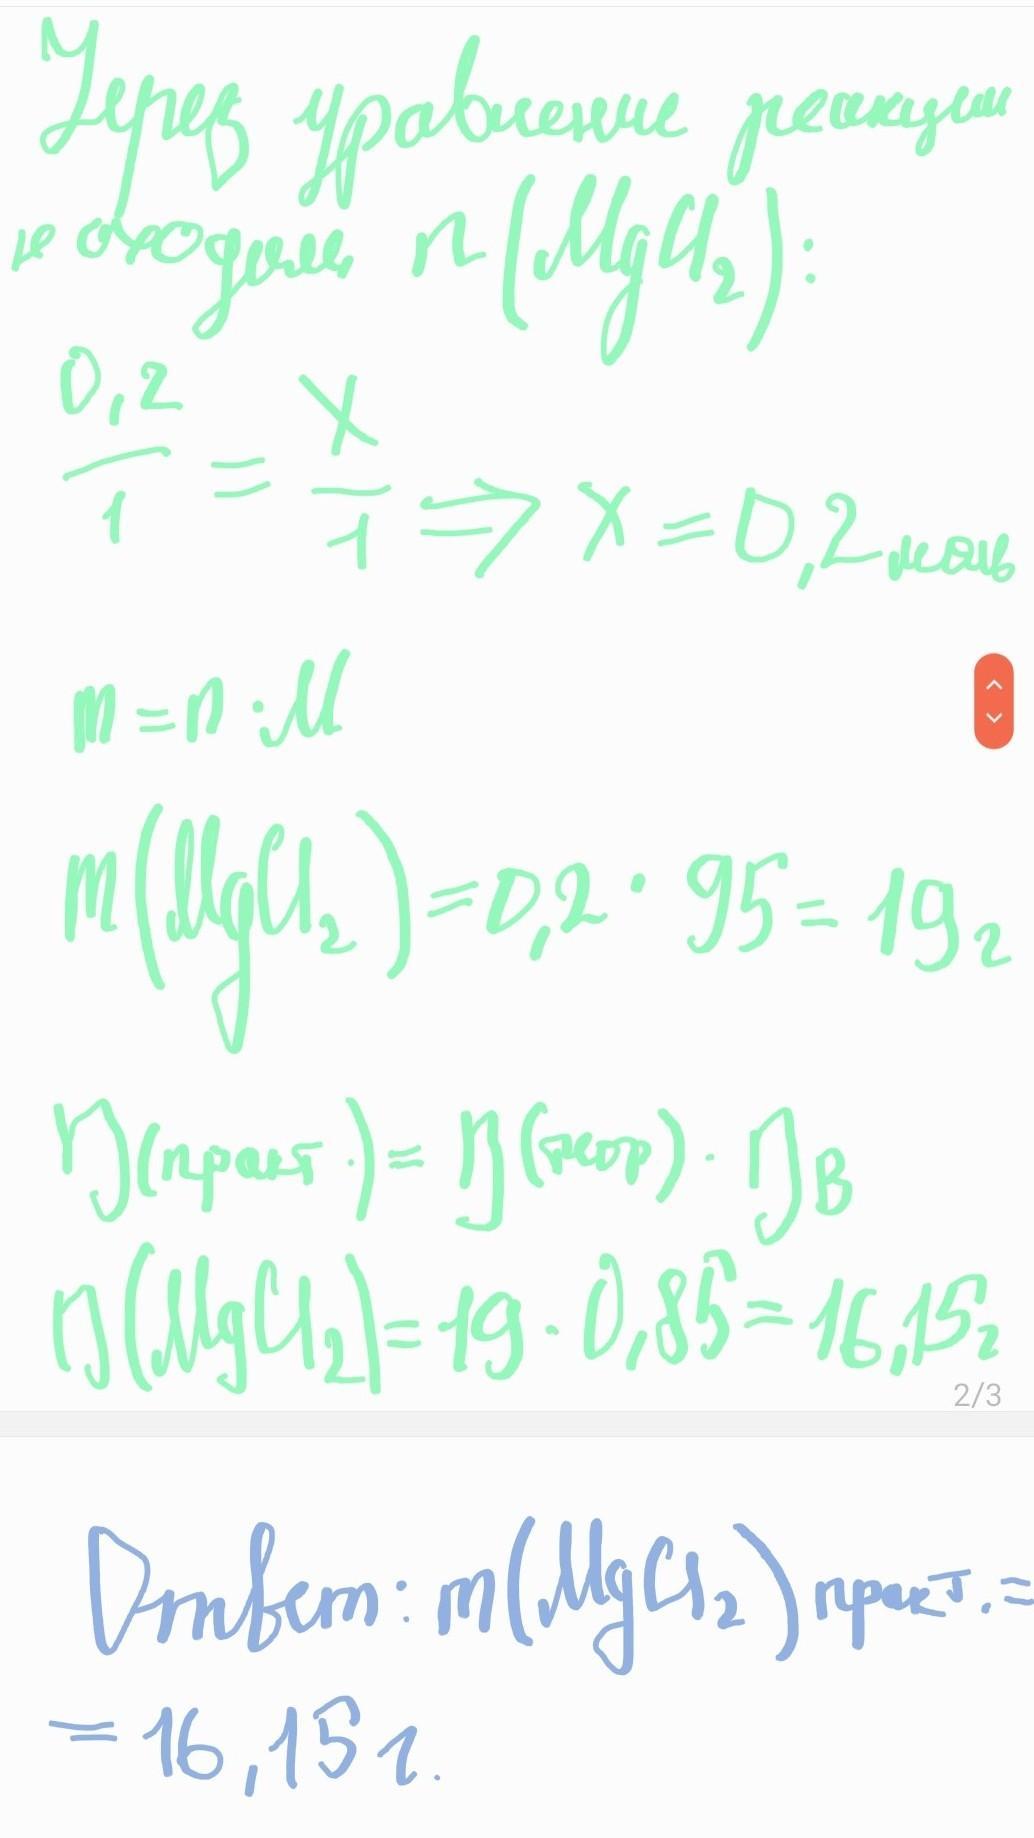 Через уравнение реакции
находим n(MgCl₂):
0,2/1 = x/1 ⇒ x = 0,2 моль
m = n · M
m(MgCl₂) = 0,2 · 95 = 19г
η(практ.) = η(теор) · ηв
η(MgCl₂) = 19 · 0,85 = 16,15г
2/3
Ответ: m(MgCl₂) практ. =
= 16,15 г.